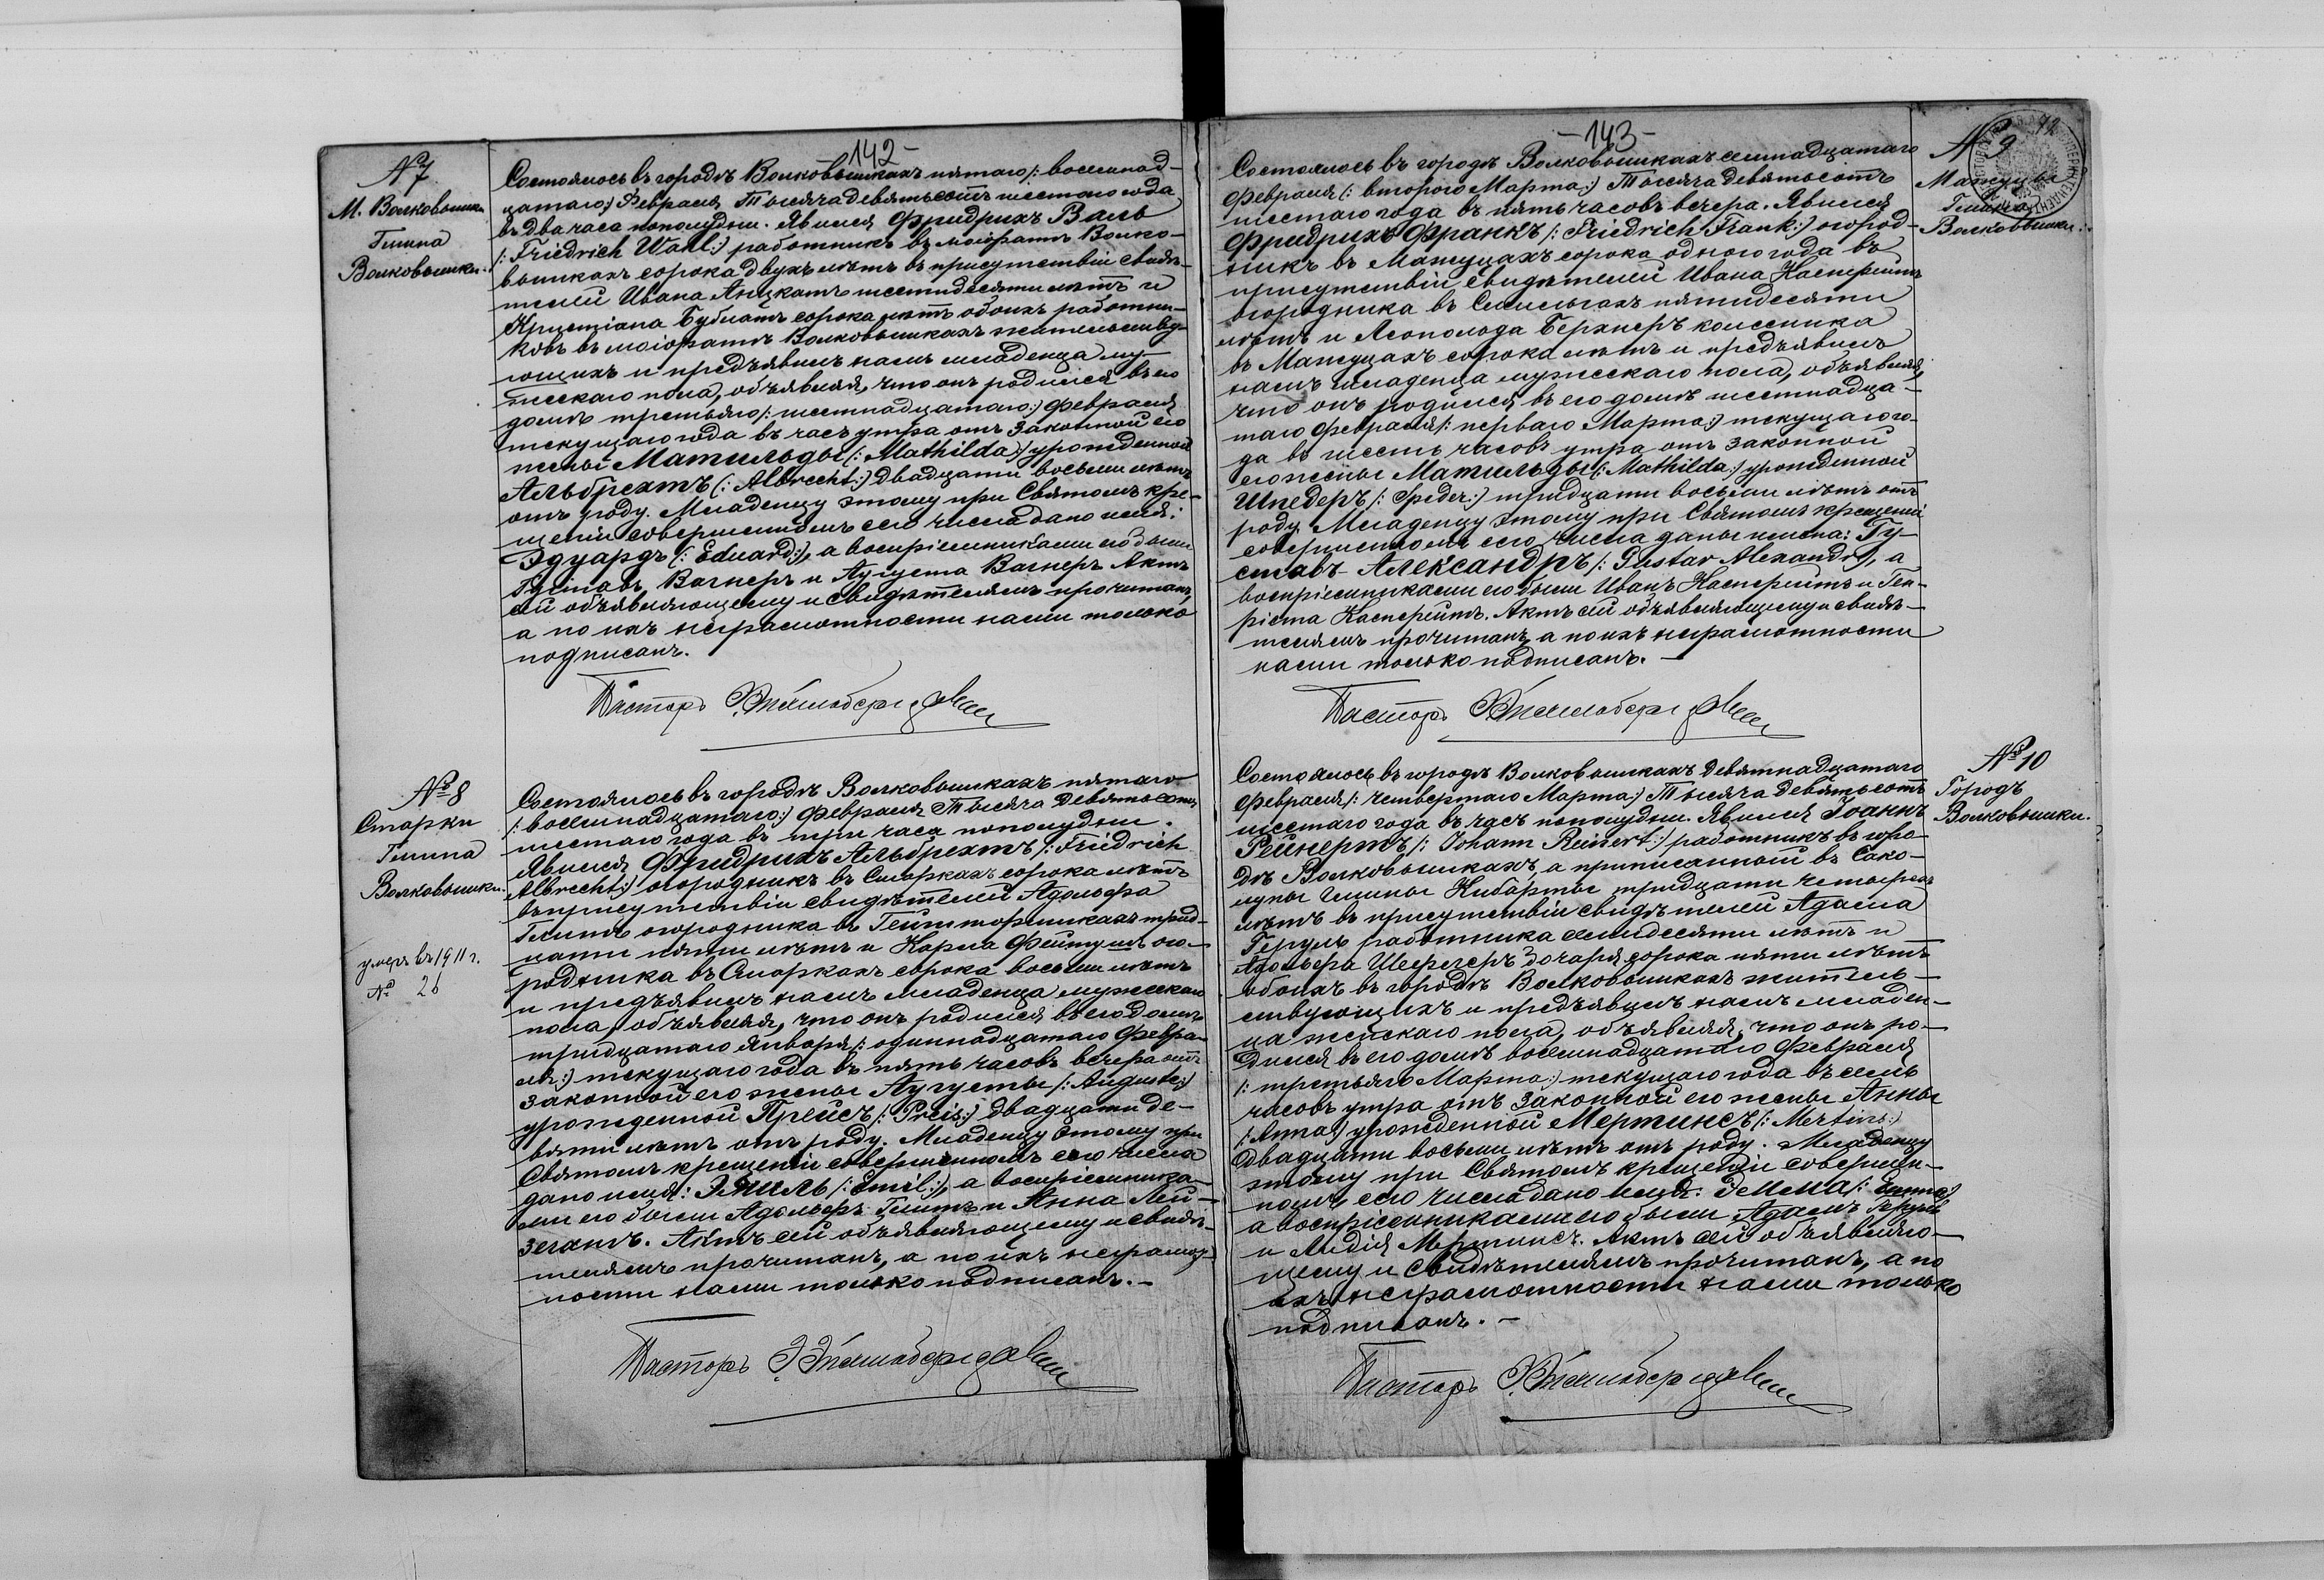 -142-
№ 7.
М. Волковышки
Гмина
Волковышки.
Состоялось въ городѣ Волковышкахъ пятаго /: восемнад-
цатаго:/ Февраля Тысяча девятьсотъ шестаго года
въ два часа пополудни. Явился Фридрихъ Валь
/: Friedrich Wall:/ работникъ въ маіоратѣ Волко-
вышкахъ сорока двухъ лѣтъ въ присутствіи свидѣ-
телей Ивана Аницкатъ шестидесяти лѣтъ и
Крисціана Бублатъ сорока лѣтъ обоихъ работни-
ковъ въ маіоратѣ Волковышкахъ жительству-
ющихъ и предъявилъ намъ младенца му-
жескаго пола, объявляя, что онъ родился въ его
домѣ третьяго /: шестнадцатаго:/ Февраля
текущаго года въ часъ утра отъ законной его
жены Матильды /: Mathilda:/ урожденной
Альбрехтъ /: Albrecht:/ двадцати восьми лѣтъ
отъ роду. Младенцу этому при Святомъ кре-
щеніи совершенномъ сего числа дано имя:
Эдуардъ /: Eduard:/, а воспріемниками его были
Густавъ Вагнеръ и Аугуста Вагнеръ. Актъ
сей объявляющему и свидѣтелямъ прочитанъ,
а по ихъ неграмотности нами только
подписанъ.
Пасторъ
№ 8
Старки
Гмина
Волковышки.
умеръ въ 1911 г.
№ 26
Состоялось въ городѣ Волковышкахъ пятаго
/: восемнадцатаго:/ Февраля Тысяча девятьсотъ
шестаго года въ три часа пополудни.
Явился Фридрихъ Альбрехтъ /: Friedrich
Albrecht:/ огородникъ въ Старкахъ сорока лѣтъ
въ присутствіи свидѣтелей Адольфа
Глинтъ огородника въ трид-
цати пяти лѣтъ и Карла ого-
родника въ Старкахъ сорока восьми лѣтъ
и предъявилъ намъ младенца мужескаго
пола, объявляя, что онъ родился въ его домѣ
тридцатаго Января /: одиннадцатаго Февра-
ля:/ текущаго года въ пять часовъ вечера отъ
законной его жены Аугусты /: Auguste:/
урожденной Прейсъ /: Preis:/ двадцати де-
вяти лѣтъ отъ роду. Младенцу этому при
Святомъ крещеніи совершенномъ сего числа
дано имя: Эмиль /: Emil:/, а воспріемника-
ми его были Адольфъ Глинтъ и Анна Лей-
зегатъ. Актъ сей объявляющему и свидѣ-
телямъ прочитанъ, а по ихъ неграмот-
ности нами только подписанъ. –
Пасторъ
-143-
72
№ 9
Мажуцы
Гмина
Волковышки.
Состоялось въ городѣ Волковышкахъ семнадцатаго
Февраля /: втораго Марта:/ Тысяча девятьсотъ
шестаго года въ пять часовъ вечера. Явился
Фридрихъ Франкъ /: Friedrich Frank:/ огород-
никъ въ Мажуцахъ сорока одного года въ
присутствіи свидѣтелей Ивана Касперейтъ
огородника въ пятидесяти
лѣтъ и Леопольда Берхнеръ колесника
въ Мажуцахъ сорока лѣтъ и предъявилъ
намъ младенца мужескаго пола, объявляя,
что онъ родился въ его домѣ шестнадца-
таго Февраля /: перваго Марта:/ текущаго го-
да въ шесть часовъ утра отъ законной
его жены Матильды /: Mathilda:/ урожденной
Шпедеръ /: Speder:/ тридцати восьми лѣтъ отъ
роду. Младенцу этому при Святомъ крещеніи
совершенномъ сего числа даны имена: Гу-
ставъ-Александръ /: Gustav Alexandr:/, а
воспріемниками его были Иванъ Касперейтъ и Ген-
ріета Касперейтъ. Актъ сей объявляющему и свидѣ-
телямъ прочитанъ, а по ихъ неграмотности
нами только подписанъ. –
Пасторъ
№ 10
Городъ
Волковышки.
Состоялось въ городѣ Волковышкахъ девятнадцатаго
Февраля /: четвертаго Марта:/ Тысяча девятьсотъ
шестаго года въ часъ пополудни. Явился Іоаннъ
Рейнертъ /: Johann Reinert:/ работникъ въ горо-
дѣ Волковышкахъ, а приписанный въ Сако-
лупы гмины Кибарты тридцати четырехъ
лѣтъ въ присутствіи свидѣтелей Адама
Геруль работника семидесяти лѣтъ и
Адольфа Шереръ бочаря сорока пяти лѣтъ
обоихъ въ городѣ Волковышкахъ житель-
ствующихъ и предъявилъ намъ младен-
ца женскаго пола, объявляя, что онъ ро-
дился въ его домѣ восемнадцатаго Февраля
/: третьяго Марта:/ текущаго года въ семь
часовъ утра отъ законной его жены Анны
/: Anna:/ урожденной Мертинсъ /: Mertins:/
двадцати восьми лѣтъ отъ роду. Младенцу
этому при Святомъ крещеніи совершен-
номъ сего числа дано имя: Эмма /: Emma:/
а воспріемниками его были Адамъ Геруль
и Лидія Мертинсъ. Актъ сей объявляю-
щему и свидѣтелямъ прочитанъ, а по
ихъ неграмотности нами только
подписанъ. –
Пасторъ